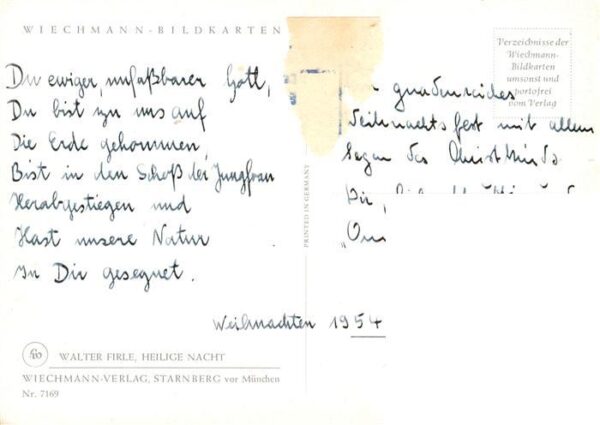 WIECHMANN-BILDKARTEN
Du ewiger, unfaßbarer Gott,
Du bist zu uns auf
Die Erde gekommen
Bist in den Schoß der Jungfrau
Herabgestiegen und
Hast unsere Natur
In Dir gesegnet.
gnadenreiches
Weihnachtsfest mit allem
Segen des Christkinds
Dir,
Weihnachten 1954
Verzeichnisse der
Wiechmann-
Bildkarten
umsonst und
portofrei
vom Verlag
PRINTED IN GERMANY
ffo
WALTER FIRLE, HEILIGE NACHT
WIECHMANN-VERLAG, STARNBERG vor München
Nr. 7169